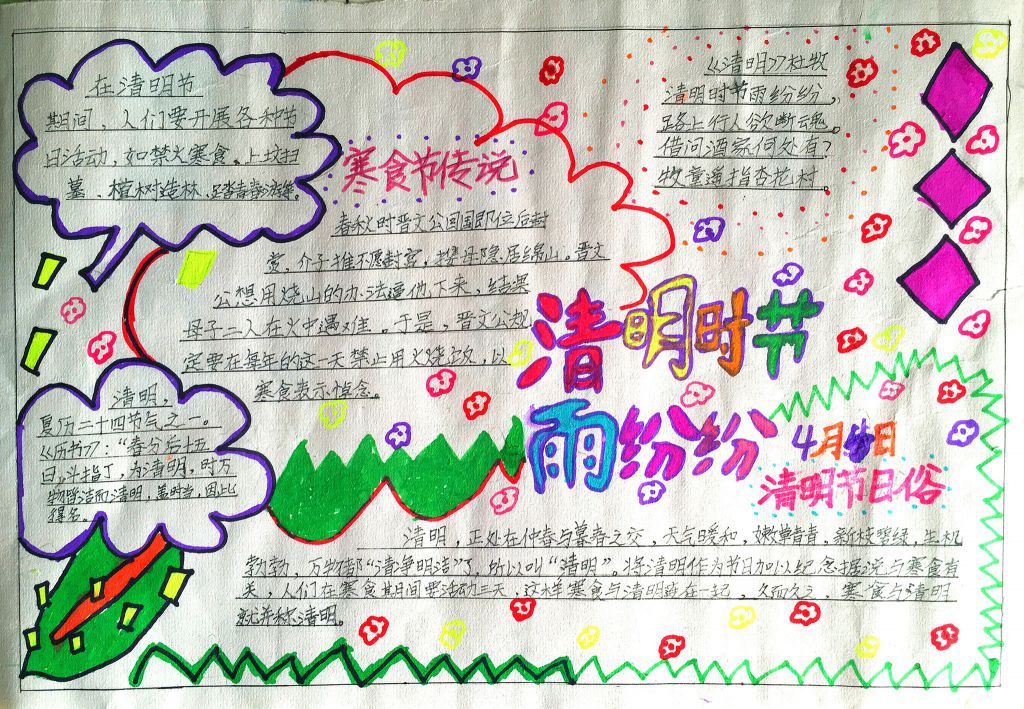 在清明节
期间，人们要开展各种节
日活动，如禁火寒食、上坟扫
墓、植树造林、足踏春游等。
寒食节传说
春秋时晋文公回国即位后封
赏，介子推不愿封官，携母隐居绵山。晋文
公想用烧山的办法逼他下来，结果
母子二人在火中遇难。于是，晋文公规
定要在每年的这一天禁止用火烧饭，以
寒食表示悼念。
《清明》杜牧
清明时节雨纷纷，
路上行人欲断魂。
借问酒家何处有？
牧童遥指杏花村。
清明时节
雨纷纷
清明，
夏历二十四节气之一。
《历书》：“春分后十五
日，斗指丁，为清明，时万
物皆洁而清明，盖时当，因此
得名。
4月日
清明节日俗
清明，正处在仲春与暮春之交，天气暖和，嫩草青青，新枝碧绿，生机
勃勃，万物都“清净明洁”了，所以叫“清明”。将清明作为节日加以纪念据说与寒食有
关，人们在寒食期间要活动三天，这样寒食与清明连在一起，久而久之，寒食与清明
就并称清明。